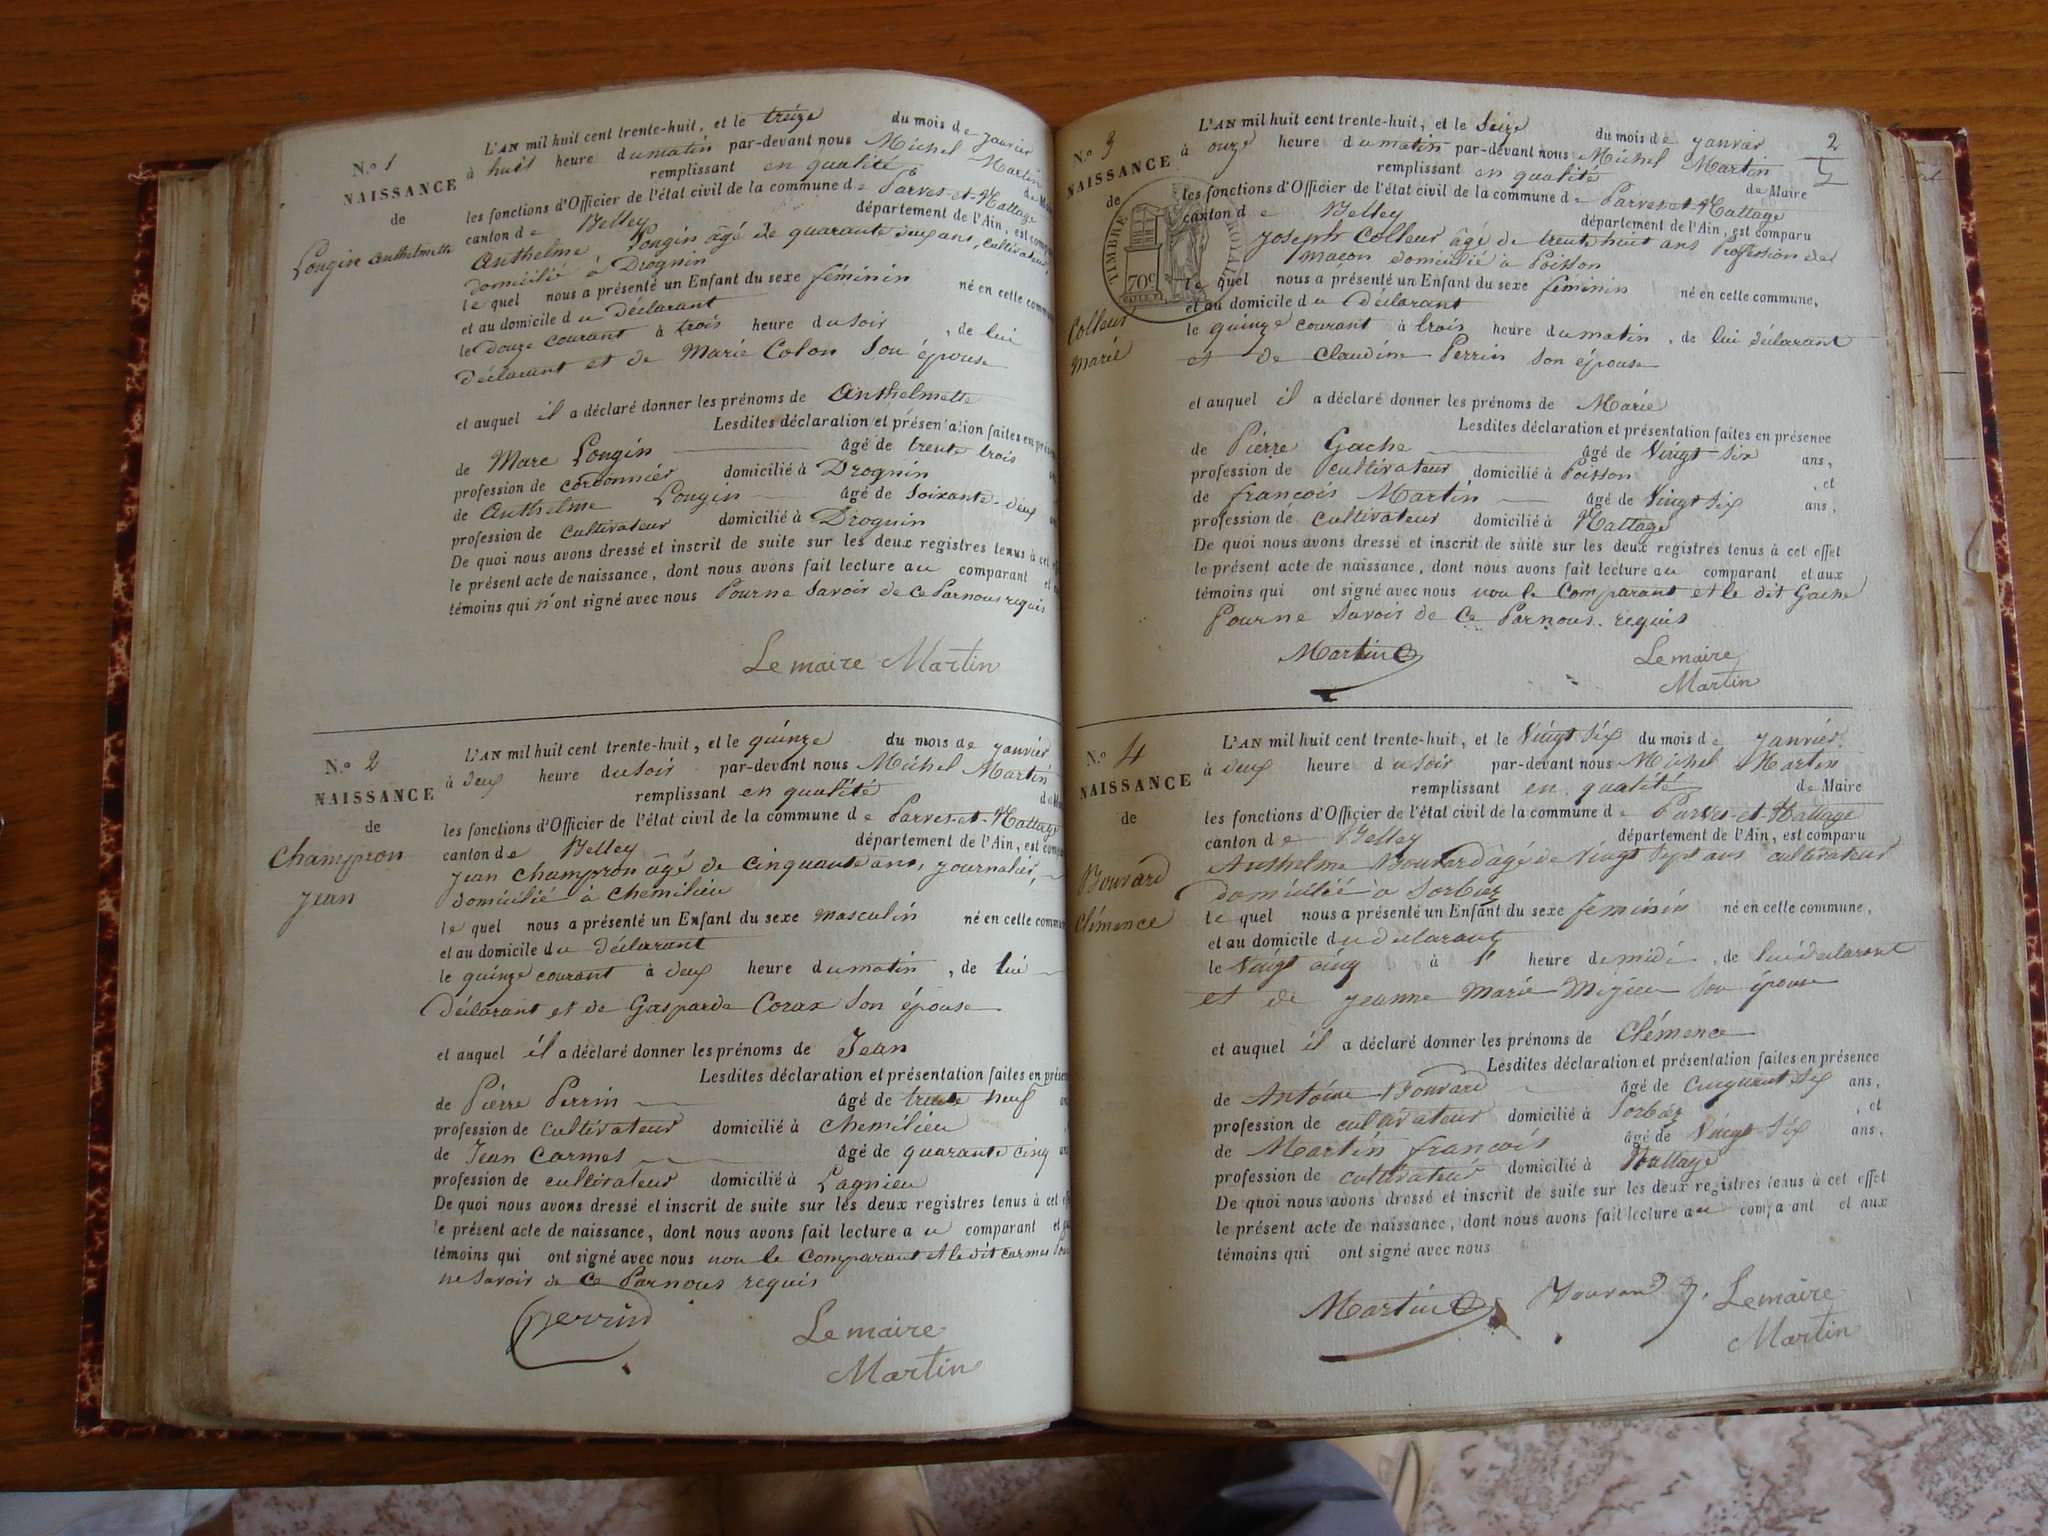 N.o 1
NAISSANCE
de
Longin Anthelmette
L'AN mil huit cent trente-huit, et le treize du mois de janvier
à huit heure du matin par-devant nous Michel Martin
remplissant en qualité de Maire
les fonctions d'Officier de l'état civil de la commune de Parves-et-Nattage
canton de Belley département de l'Ain, est comparu
Anthelme Longin âgé de quarante deux ans, cultivateur,
domicilié à Drognin
lequel nous a présenté un Enfant du sexe féminin né en cette commune
et au domicile du déclarant
le douze courant à trois heure du soir, de lui
déclarant et de Marie Colon son épouse
et auquel il a déclaré donner les prénoms de Anthelmette
Lesdites déclaration et présentation faites en
de Marc Longin âgé de trente trois
profession de cordonnier domicilié à Drognin
de Anthelme Longin âgé de soixante-deux
profession de cultivateur domicilié à Drognin
De quoi nous avons dressé et inscrit de suite sur les deux registres tenus à cet
le présent acte de naissance, dont nous avons fait lecture au comparant et
témoins qui n'ont signé avec nous Pour ne savoir de ce Par nous requis
Le maire Martin
N.o 2
NAISSANCE
de
Champron
Jean
L'AN mil huit cent trente-huit, et le quinze du mois de janvier
à deux heure du soir par-devant nous Michel Martin
remplissant en qualité de
les fonctions d'Officier de l'état civil de la commune de Parves-et-Nattage
canton de Belley département de l'Ain, est
Jean Champron âgé de cinquante ans, journalier,
domicilié à Chemilieu
lequel nous a présenté un Enfant du sexe masculin né en cette
et au domicile du déclarant
le quinze courant à deux heure du matin, de lui
déclarant et de Gasparde Corax son épouse
et auquel il a déclaré donner les prénoms de Jean
Lesdites déclaration et présentation faites en
de Pierre Perrin âgé de trente neuf
profession de cultivateur domicilié à Chemilieu
de Jean Carmes âgé de quarante cinq
profession de cultivateur domicilié à Lagnieu
De quoi nous avons dressé et inscrit de suite sur les deux registres tenus à cet
le présent acte de naissance, dont nous avons fait lecture au comparant et
témoins qui ont signé avec nous non le comparant et le dit Carmes Pour
ne savoir de ce Par nous requis
Perrin
Le maire
Martin
2
N.o 3
NAISSANCE
de
Colleur
Marie
TIMBRE ROYAL
70c
L'AN mil huit cent trente-huit, et le seize du mois de janvier
à onze heure du matin par-devant nous Michel Martin
remplissant en qualité de Maire
les fonctions d'Officier de l'état civil de la commune de Parves-et-Nattage
canton de Belley département de l'Ain, est comparu
Joseph Colleur âgé de trente huit ans Profession de
maçon domicilié à Poisson
lequel nous a présenté un Enfant du sexe féminin né en cette commune,
et au domicile du déclarant
le quinze courant à trois heure du matin, de lui déclarant
et de Claudine Perrin son épouse
et auquel il a déclaré donner les prénoms de Marie
Lesdites déclaration et présentation faites en présence
de Pierre Gache âgé de vingt six ans,
profession de cultivateur domicilié à Poisson, et
de françois Martin âgé de vingt six ans,
profession de cultivateur domicilié à Nattage
De quoi nous avons dressé et inscrit de suite sur les deux registres tenus à cet effet
le présent acte de naissance, dont nous avons fait lecture au comparant et aux
témoins qui ont signé avec nous non le comparant et le dit Gache
Pour ne savoir de ce Par nous requis
Martin
Le maire
Martin
N.o 4
NAISSANCE
de
Bouvard
Clémence
L'AN mil huit cent trente-huit, et le vingt six du mois de janvier
à deux heure du soir par-devant nous Michel Martin
remplissant en qualité de Maire
les fonctions d'Officier de l'état civil de la commune de Parves-et-Nattage
canton de Belley département de l'Ain, est comparu
Anthelme Bouvard âgé de vingt sept ans cultivateur
domicilié à Sorbaz
lequel nous a présenté un Enfant du sexe féminin né en cette commune,
et au domicile du déclarant
le vingt cinq à l' heure de midi, de lui déclarant
et de jeanne Marie Mijieu son épouse
et auquel il a déclaré donner les prénoms de Clémence
Lesdites déclaration et présentation faites en présence
de Antoine Bouvard âgé de cinquant six ans,
profession de cultivateur domicilié à Sorbaz, et
de Martin françois âgé de vingt-six ans,
profession de cultivateur domicilié à Nattage
De quoi nous avons dressé et inscrit de suite sur les deux registres tenus à cet effet
le présent acte de naissance, dont nous avons fait lecture au comparant et aux
témoins qui ont signé avec nous
Martin
Le maire
Martin